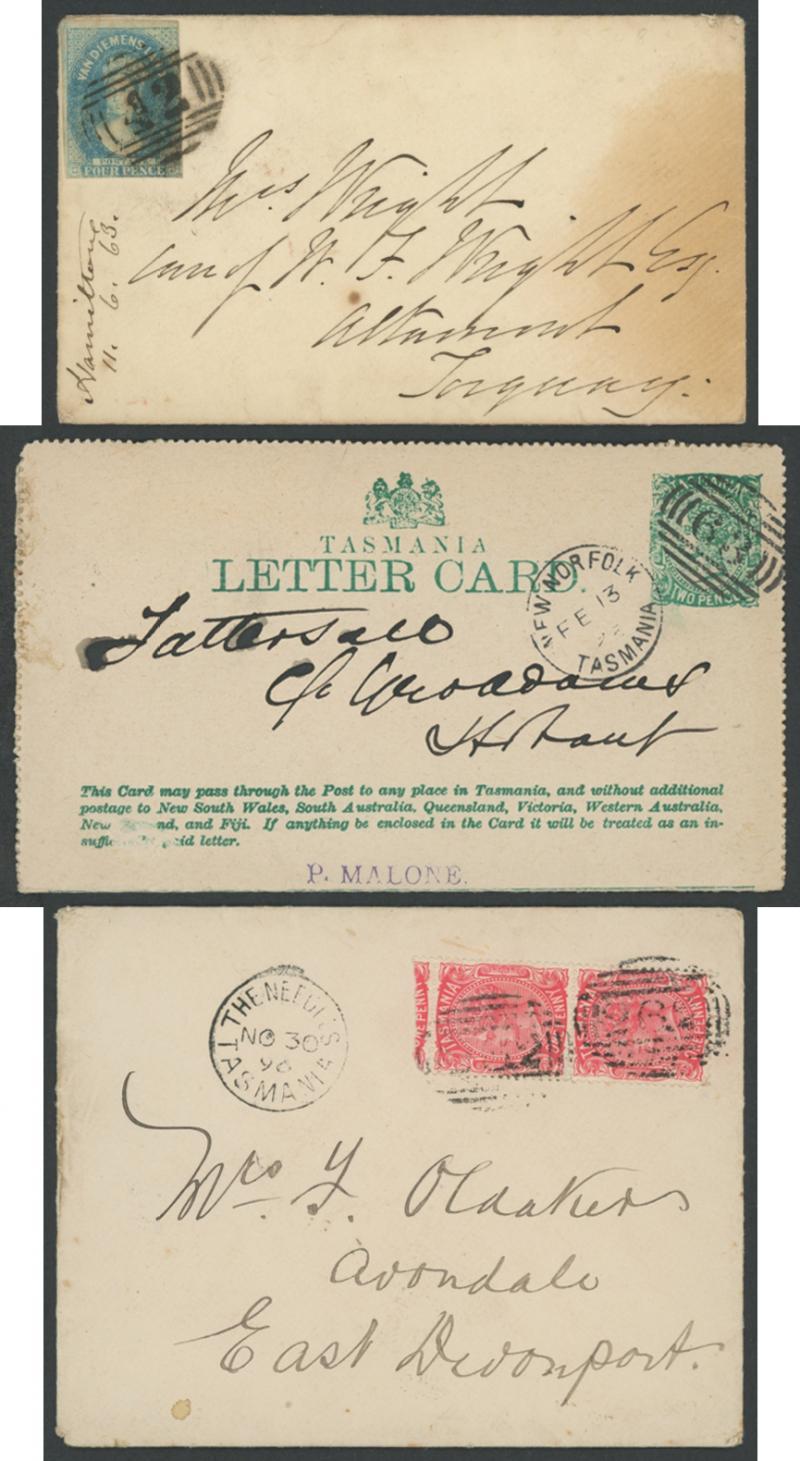 VAN DIEMENS
42
POSTAGE
FOUR PENCE
Hamilton
11. 6. 63.
Mrs Wright
care of W. F. Wright Esq.
Altamont
Torquay.
TASMANIA
LETTER CARD.
63
TWO PENCE
NEW NORFOLK
FE 13
TASMANIA
Tattersall
c/o Geo Adams
Hobart
This Card may pass through the Post to any place in Tasmania, and without additional
postage to New South Wales, South Australia, Queensland, Victoria, Western Australia,
New nd, and Fiji. If anything be enclosed in the Card it will be treated as an in-
suffic id letter.
P. MALONE.
THE NEEDLES
NO 30
96
TASMANIA
E PENNY
TASMANIA
ONE PENNY
Mrs. F. Oldakers
Avondale
East Devonport.